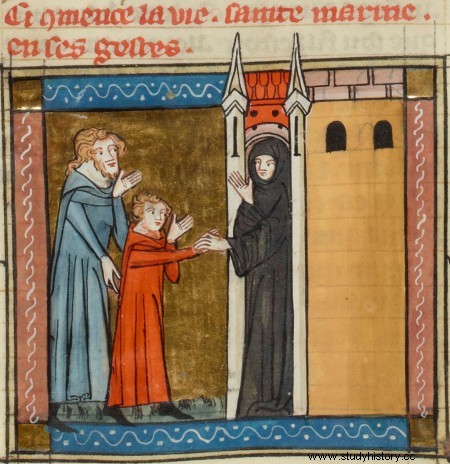 Ci cmence la vie . sainte marine .
en ses gestes .
www.studyhistory.cc